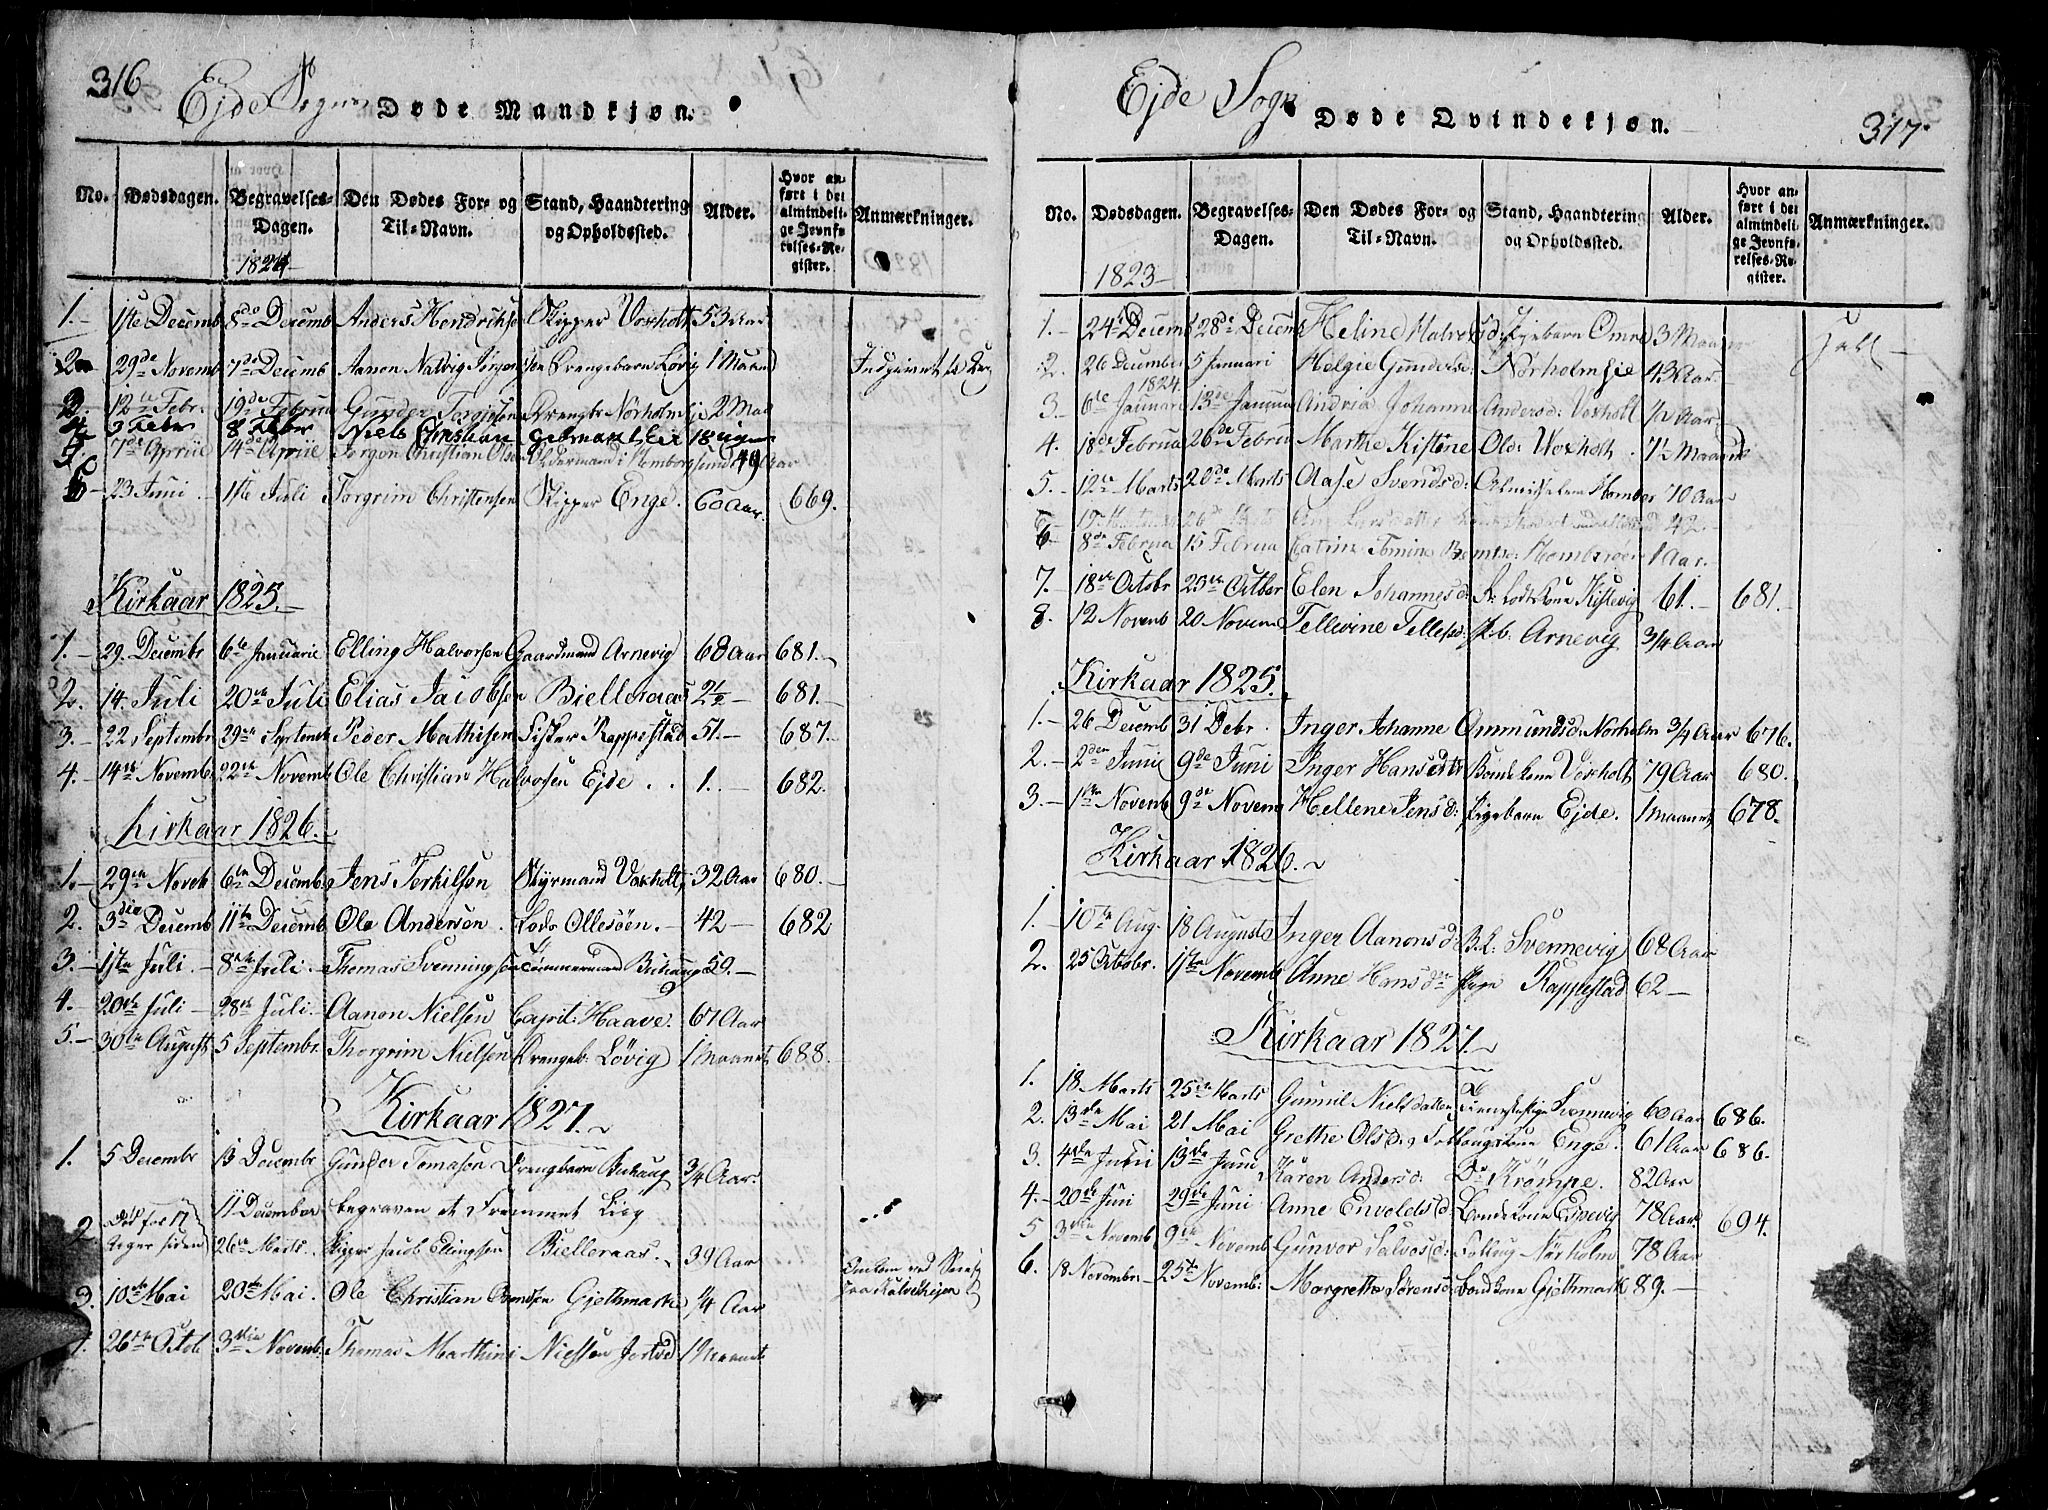 316
Ejde Sogn Døde Mandkjøn.
No. Dødsdagen. Begravelses-Dagen. Den Dødes For- og Til-Navn. Stand, Haandtering og Opholdssted. Alder. Hvor anført i det almindelige Jevnførelses-Register. Anmærkninger.
1824
1. 1ste Decemb 8de Decemb Anders Hendriksen Skipper Voxholt 53 Aar
2 29de Novemb 7de Decemb Aanon Nalvig Jørgensen Drengebarn Løvig 1 Maan
3. 12te Febr. 19de Februa Gunder Torgjesen Drengbr Nørholm 2 Maa
4 3 Febr 8 Febr Niels Christian 18 uger
5 7de Aprill 14de Aprill Jørgen Christian Olsen Oldermand i Homborsund 49 Aar
6 23 Juni 1ste Juli Torgrim Christensen Skipper Enge. 60 Aar. 669.
Kirkaar 1825.
1. 29. Decembr 6te Januarii Elling Halvorsen Gaardmand Arnevig 68 Aar 681.
2. 14. Juli 20de Juli Elias Jacobsen Bielleraas 2½ 681.
3. 22 Septembr 29de Septemb Peder Mathisen Fisker Rappestad 51. 687.
4. 14de Novemb 22de Novemb Ole Christian Halvorsen Ejde . . 1. 682.
Kirkaar 1826.
1. 29de Noveb 6te Decemb Jens Terkilsen Styrmand Voxholt 32 Aar 680.
2. 3die Decemb 11te Decemb Ole Andersen. Lods Ollesøen. 42 682
3. 1ste Juli 8de Juli. Thomas Svenningsen Tømmermand 59.
4. 20de Juli 28de Juli. Aanon Nielsen Capit: Haave. 67 Aar
5. 30te August 5 Septembr. Thorgrim Nielsen Drengeb. Løvig 1 Maanet 688.
Kirkaar 1827.
1. 5 Decembr 13 Decembr Gunder Tomasen Drengbarn ¾ Aar.
11 Decembr begraven et Fremmet Liig
2 Død for 17 Uger siden 26de Marts. Skipper Jacob Ellingsen Bielleraas. 39 Aar
3. 10de Mai 20de Mai. Ole Christian Berntsen Gjethmarke ¼ Aar
4. 26de Octob 3die Novemb: Thomas Marthini Nielsen 1 Maanet
317
Ejde Sogn Døde Qvindekjøn.
No. Dødsdagen. Begravelses-Dagen. Den Dødes For- og Til-Navn. Stand, Haandtering og Opholdssted. Alder. Hvor anført i det almindelige Jevnførelses-Register. Anmærkninger.
1823
1. 24de Decemb 28de Decemb Heline Halvorsd: Pigebarn Omre 3 Maaner
2. 26 Decembr 5 Januari Helgie Gundersd: Nørholmseie 43 Aar.
1824
3 6te Januari 13de Januar Andrea Johanne Andersd: Voxholt ½ Aar
4. 18de Februa 26de Februa Marthe Kistine Olsd: Voxholt. 7½ Maaned
5. 12te Marts 20de Marts Aase Svendsd: 70 Aar
42
6 8de Februa 15 Februa Catrine Tomine Berntsd: Homborøen 1 Aar.
7. 18de Octobr 25de Octber Elen Johannesd: Kistevig 61. 681.
8. 12 Novemb 20 Novem Tellevine Tellefsd: P.b. Arnevig ¾ Aar
Kirkaar 1825.
1. 26 Decemb 31 Debr. Inger Johanne Ommundsd: Nørholm ¾ Aar 676.
2. 2den Juni 9de Juni Inger Hansdtr Bondekone Voxholt 79 Aar 680.
3. 1ste Novemb 9de Novem Hellene Jensd: Pigebarn Ejde. 1 Maanet 678.
Kirkaar 1826.
1. 10de Aug. 18 Augusts Inger Aanonsd: B.K. Svennevig 68 Aar
2. 25 Octobr. 1ste Novemb Anne Hansd: Pige Rappestad 62
Kirkaar 1827.
1. 18 Marts 25de Marts Gunnil Nielsdatter Svennevig 60 Aar 686.
2. 13de Mai 21 Mai Grethe Olsd: Enge. 61 Aar 686.
3. 4de Juni 13de Juni Karen Andersd: Do Krømpe. 82 Aar
4. 20de Juni 29de Juni Anne Envoldsd: Bondekone Espevig 78 Aar 694.
5 3die Novemb 9de Novemb Gunvor Salvesd: Nørholm 78 Aar
6. 18 Novembr 25de Novemb: Margrethe Sørensd: Bondkone Gjethmark 89.